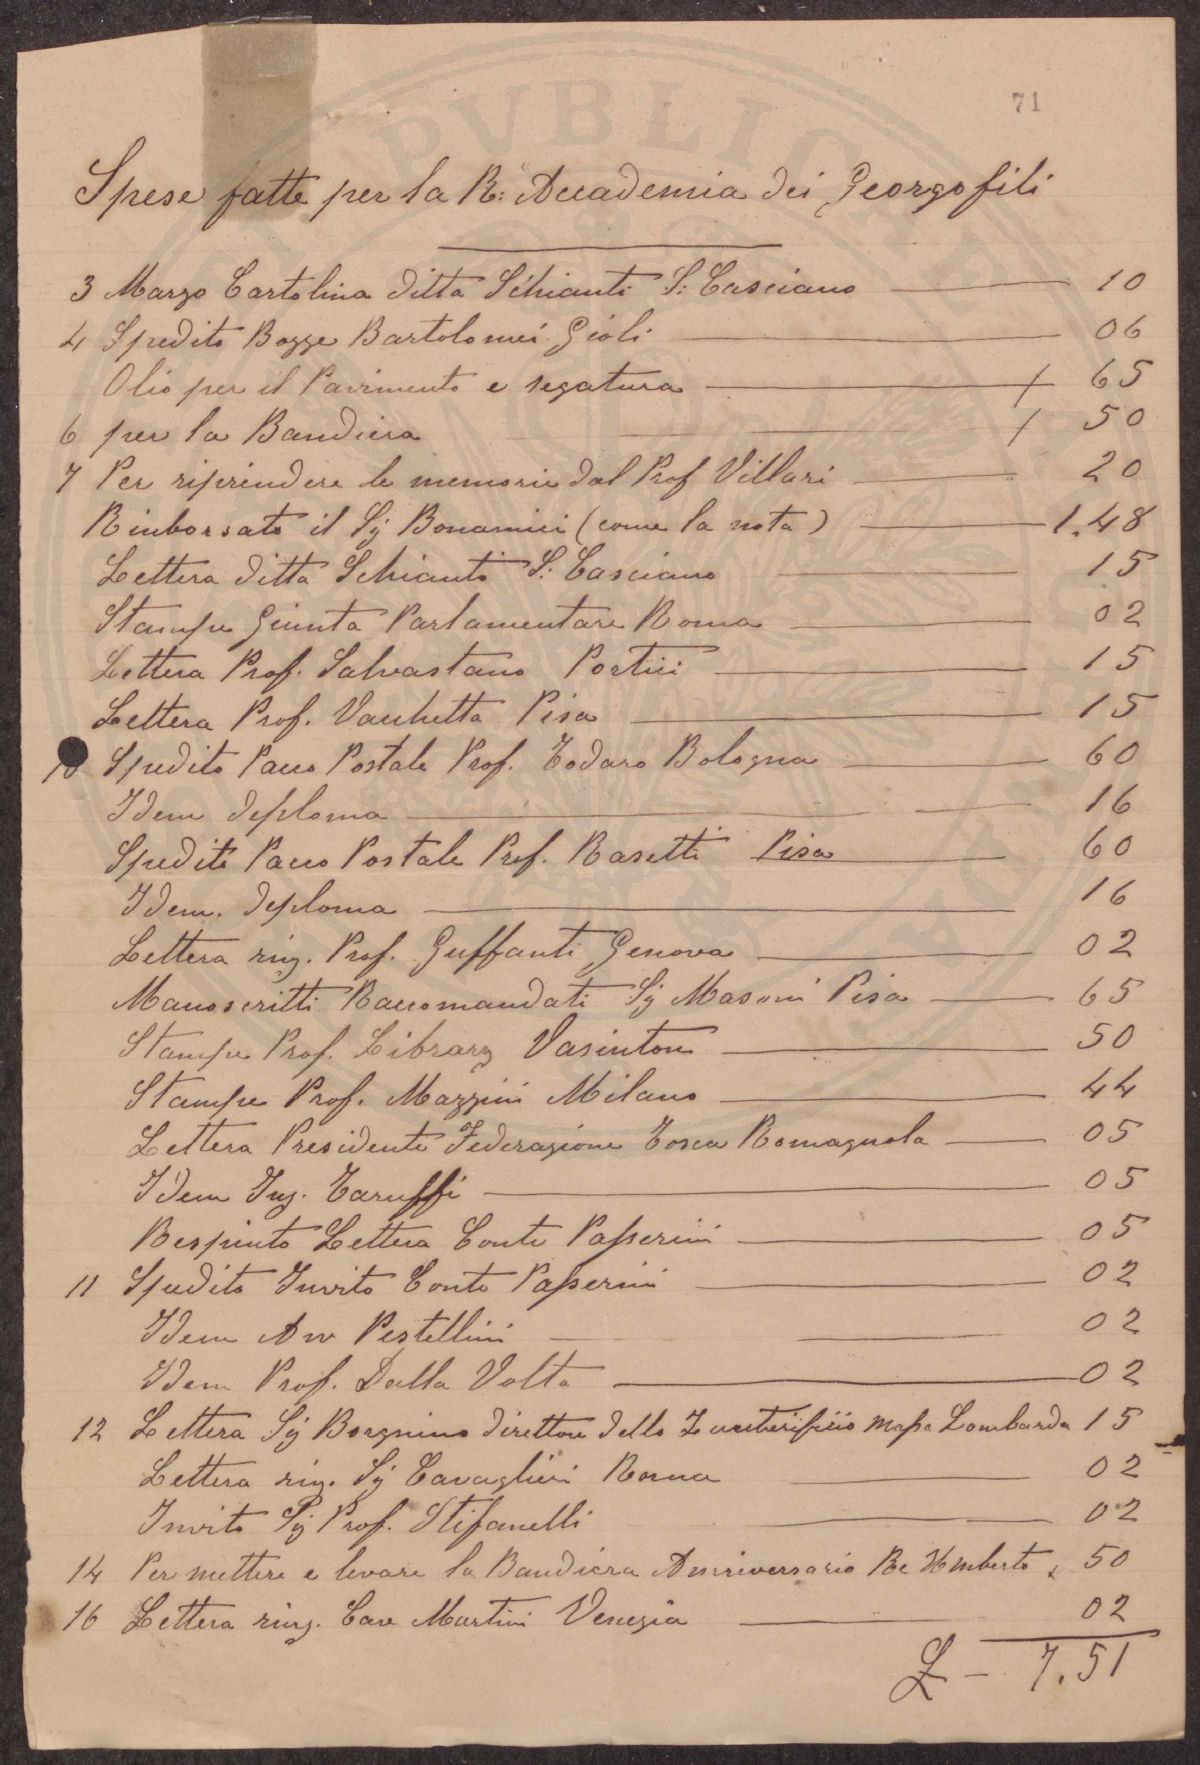 71
Spese fatte per la R: Accademia dei Georgofili
3 Marzo Cartolina ditta Schianti S: Casciano 10
4 Spedito Bozze Bartolomei Gioli 06
Olio per il Pavimento e segatura 65
6 per la Bandiera 50
7 Per riprendere le memorie dal Prof Villari 20
Rinborsato il Sg Bonamici (come la nota) 1.48
Lettera ditta Schianti S: Casciano 15
Stampe Giunta Parlamentare Roma 02
Lettera Prof. Salvastano Portici 15
Lettera Prof. Vachetta Pisa 15
10 Spedito Pacco Postale Prof. Todaro Bologna 60
Idem deploma 16
Spedito Pacco Postale Prof. Rasetti Pisa 60
Idem. deploma 16
Lettera ring. Prof. Guffanti Genova 02
Manoscritti Raccomandati Sg Masoni Pisa 65
Stampe Prof. Library Vasinton 50
Stampe Prof. Mazzini Milano 44
Lettera Presidente Federazione Tosca Romagnola 05
Idem Ing. Taruffi 05
Respinto Lettera Conte Passerini 05
11 Spedito Invito Conte Passerini 02
Idem Avv Pestellini 02
Idem Prof. Dalla Volta 02
12 Lettera Sg Borgnino direttore dello Zuccherificio Massa Lombarda 15
Lettera ring. Sg Cavaglieri Roma 02
Invito Sg Prof. Stefanelli 02
14 Per mettere e levare la Bandiera Anniversario Re Umberto 50
16 Lettera ring. Cav Martini Venezia 02
£ - 7.51